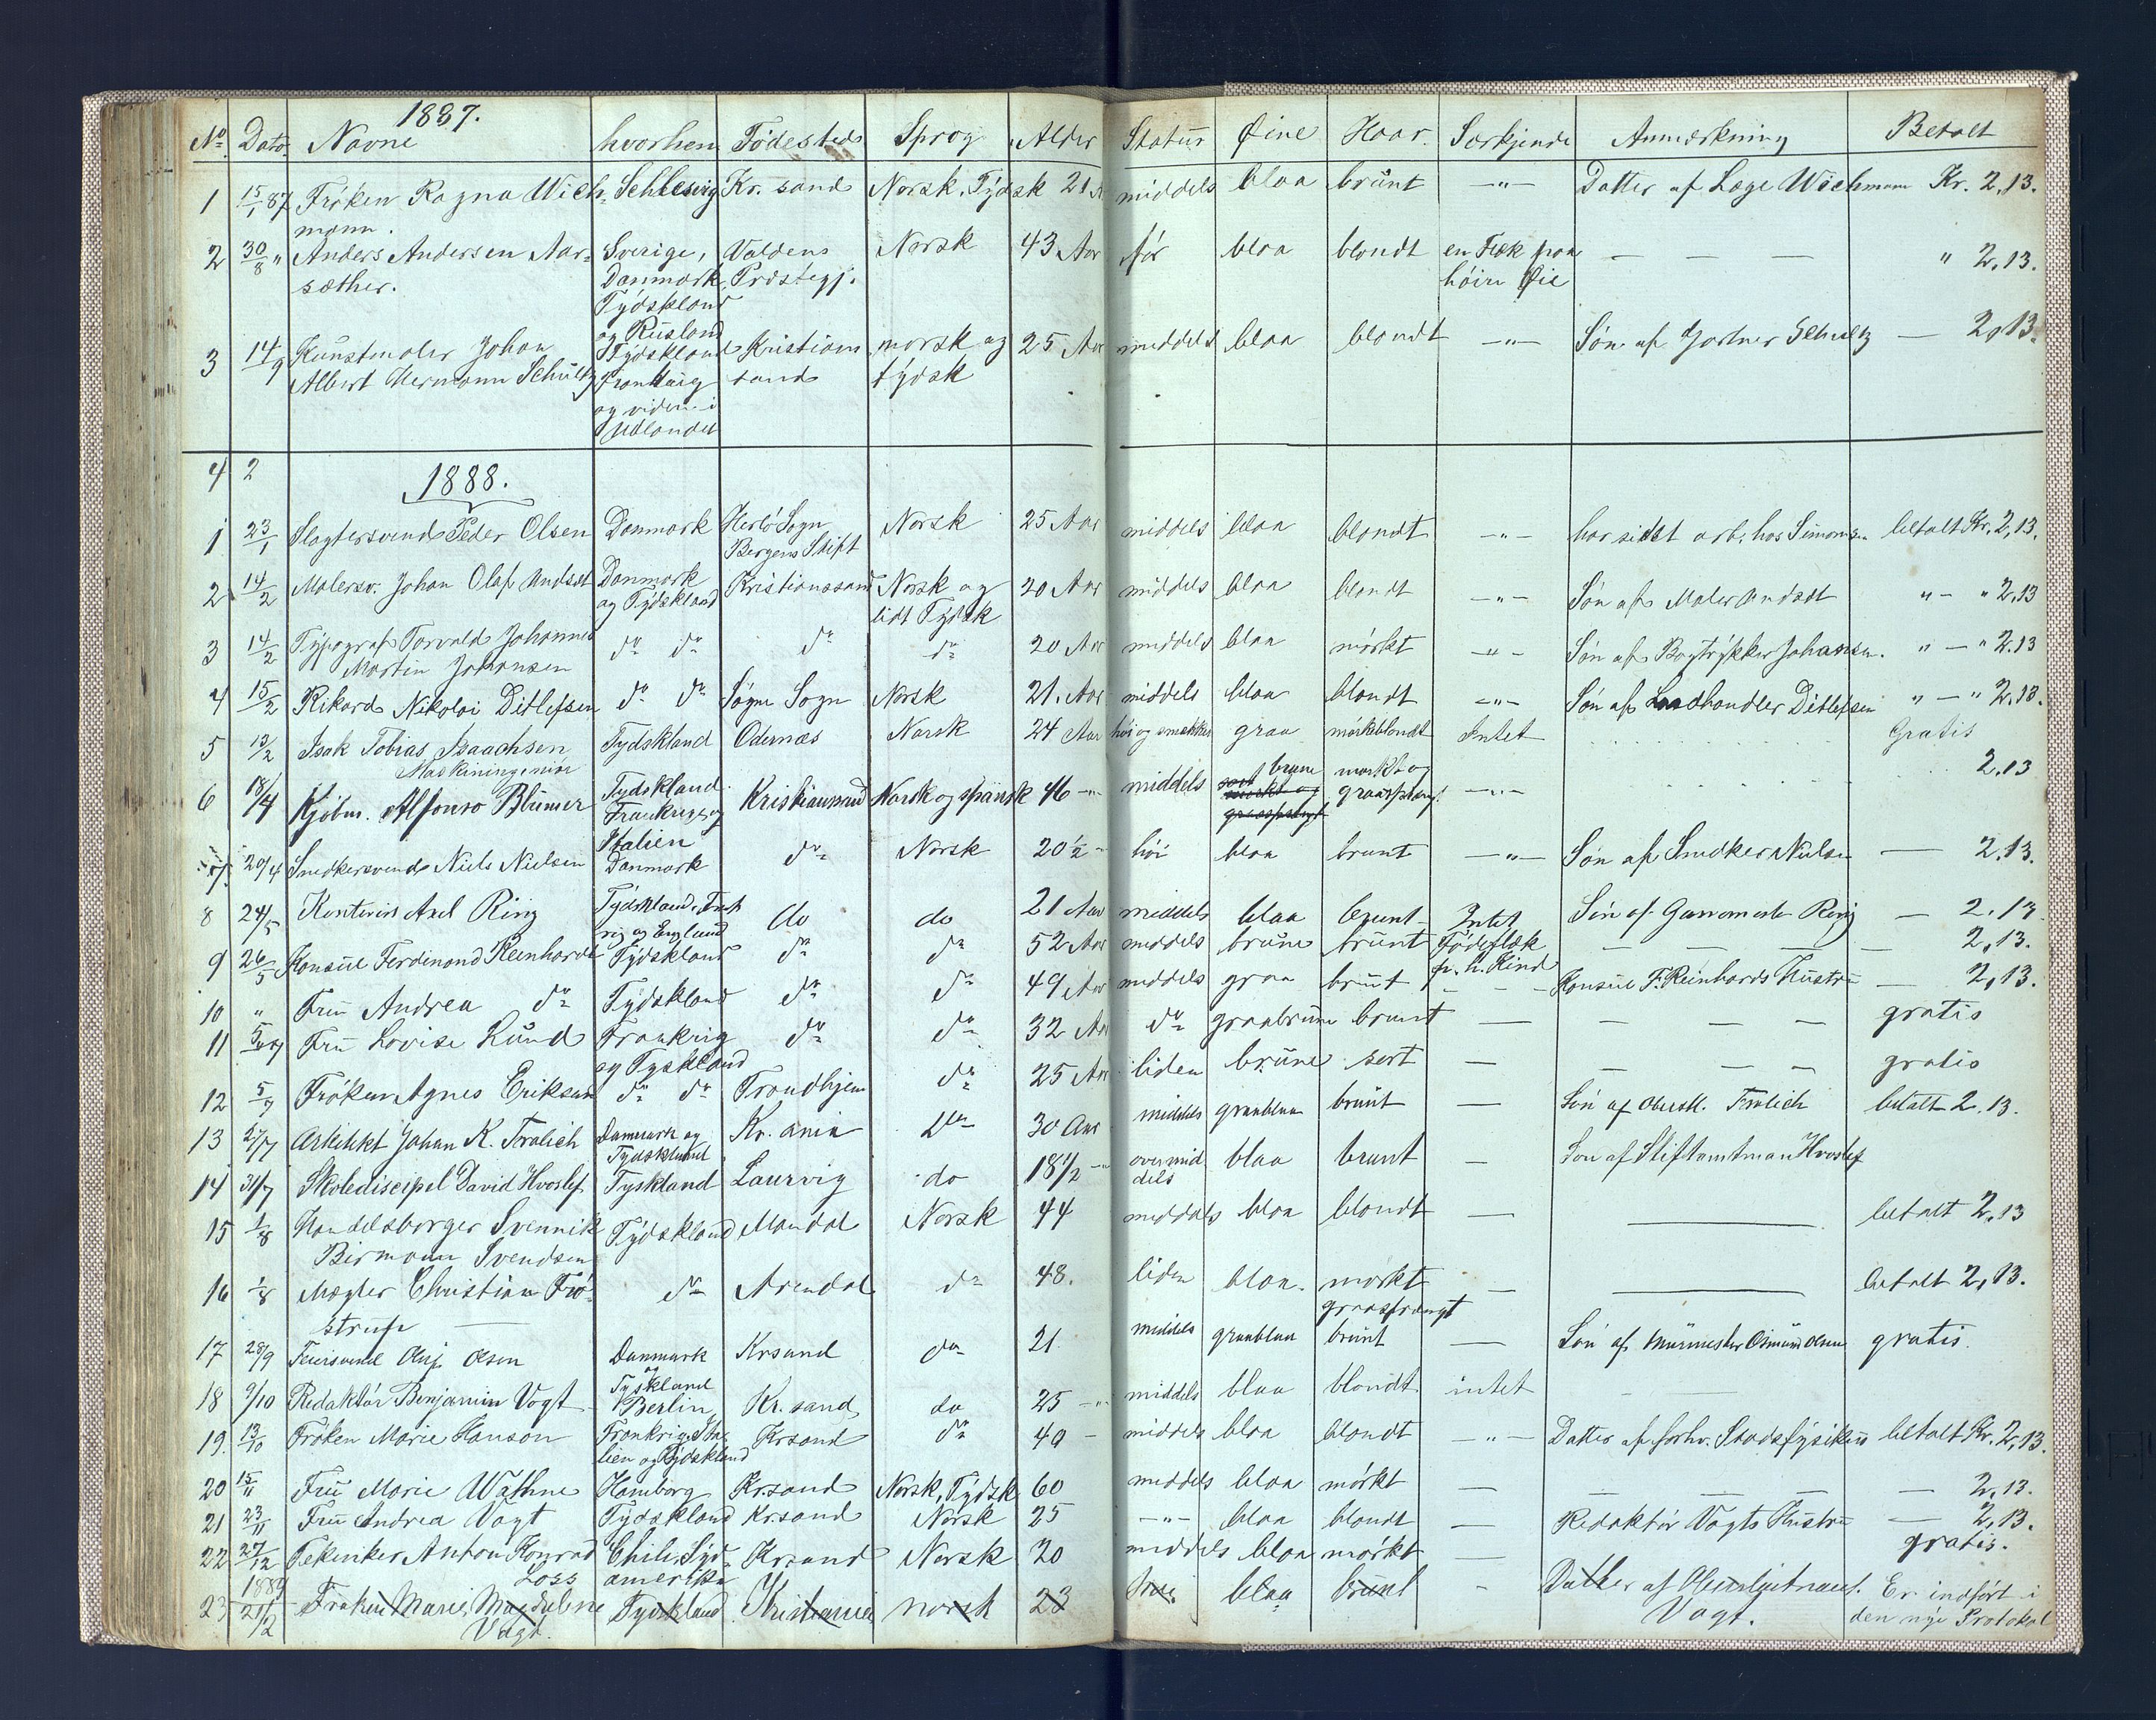 1887.
No. Dato. Navne hvorhen Födested Sprog Alder Statur Øine Haar. Særkjende Anmærkning Betalt
1 15/1 87 Fröken Ragna Wich- Schlesvig Kr. sand Norsk, Tydsk 21 middels blaa brunt —"— Datter af Læge Wichmann Kr. 2,13.
mann.
2 30/8 " Anders Andersen Aar- Sverige, Valdens Norsk 43 Aar för blaa blondt en Flek paa — — — " 2,13.
sæther. Danmark, Præstegj. höire Øie
Tydskland
og Rusland
3 14/9 Kunstmaler Johan Tydskland Kristian norsk og 25 Aar middels blaa blondt —"— Sön af Gartner Schultz — 2,13.
Albert Hermann Schultz Frankrig sand tydsk
og viden i
Udlandet
4 2
1888.
1 23/1 Slagtersvend Peder Olsen Danmark Herlö Sogn Norsk 25 Aar middels blaa blondt —"— har sidst arb. hos betalt Kr. 2,13.
Bergens Stift
2 14/2 Malersv. Johan Olaf Danmark Kristianssand Norsk og 20 Aar middels blaa blondt —"— Sön af Maler " — " 2,13
og Tydskland lidt Tydsk
3 14/2 Typograf Torvald Johannes do do do do 20 Aar middels blaa mörkt —"— Sön af Bogtrykker Johansen. " — " 2.13
Martin Johansen
4 15/2 Rikard Nikolai Ditlefsen do do Sögne Sogn Norsk 21. Aar middels blaa blondt —"— Sön af Ditlefsen " — " 2.13.
5 13/2 Isak Tobias Isaachsen Tydskland Odernæs Norsk 24 Aar höi og smækker graa mörkeblondt Intet Gratis
Maskiningeniör
6 18/4 Kjöbm. Alfonso Blumer Tydskland Kristianssund Norsk og spansk 46 —"— middels brune mörkt og —"— 2.13
Frankrig og graasprængt
Italien
7 20/4 Snedkersvend Niels Nielsen Danmark do Norsk 20½ — höi blaa brunt —"— Sön af Snedker Nielsen — 2,13.
8 24/5 Kontorist Axel Ring Tydskland, Frank do do 21 Aar middels blaa brunt Intet Sön af Ring — 2.13
rig og England
9 26/5 Konsul Ferdinand Reinhardt Tydskland do do 52 Aar middels brune brunt Födeflæk — — — — 2,13.
p. h. Kind
10 " Fru Andrea do Tydskland do do 49 Aar middels graa brunt — — Konsul F. Reinhards Hustru — 2,13.
11 5/7 Fru Lovise Lund Frankrig do do 32 Aar do graabrune brunt — — — — gratis
og Tyskland
12 5/7 Fröken Agnes Eriksen do do Trondhjem do 25 Aar liden brune sort — — — — gratis
13 27/7 Arkitekt Johan K. Frølich Danmark og Kr. ania do 30 Aar middels graablaa brunt — Sön af Oberstl. Frølich betalt 2.13.
Tydskland
14 31/7 Skolediscipel David Hvoslef Tyskland Laurvig do 18½ —"— over mid blaa brunt — Sön af Stiftamtmann Hvoslef
dels
15 1/8 Handelsborger Svennik Tydskland Mandal Norsk 44 middels blaa blondt — — betalt 2,13
Birmann Svendsen
16 1/8 Mægler Christian Frö- do Arendal do 48. liden blaa. mörkt — — betalt 2,13.
strup — graasprængt
17 28/9 Feiersvend Olaf Olsen Danmark Krsand do 21 middels graablaa brunt — Sön af Murmester Osmund Olsen gratis.
og
Tyskland
18 9/10 Redaktör Benjamin Vogt Berlin Kr. sand do 25 —"— middels blaa blondt intet
19. 13/10 Fröken Marie Hanson Frankrig, Ita Krsand do 40 — middels blaa blondt —"— Datter af forhv. Stadsfysikus betalt Kr. 2,13.
lien og Tydskland
20 15/11 Fru Marie Wathne Hamborg Krsand Norsk, Tydsk 60 middels blaa mörkt — — — — 2,13.
21 23/11 Fru Andrea Vogt Tydskland Krsand Norsk 25 —"— blaa blondt — Redaktör Vogts Hustru — 2,13.
22 27/12 Tekniker Anton Konrad Chili, Syd- Krsand Norsk 20 middels blaa mörkt — gratis.
Loss amerika
1889
23 21/2 Frøken Marie Magdalene Tydskland Kristiania norsk 23 blaa brunt - Datter af Oberstlieutnant Er indfört i
Vogt. Vogt. den nye Protokol